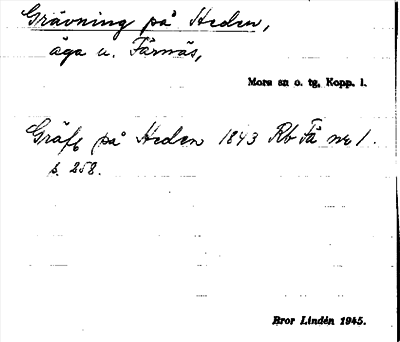 Grävning på Heden,
äga u. Färnäs,
Mora sn o. tg, Kopp. l.
Gräfg på Heden 1843 Rb Få nr 1.
s. 258.
Bror Lindén 1945.